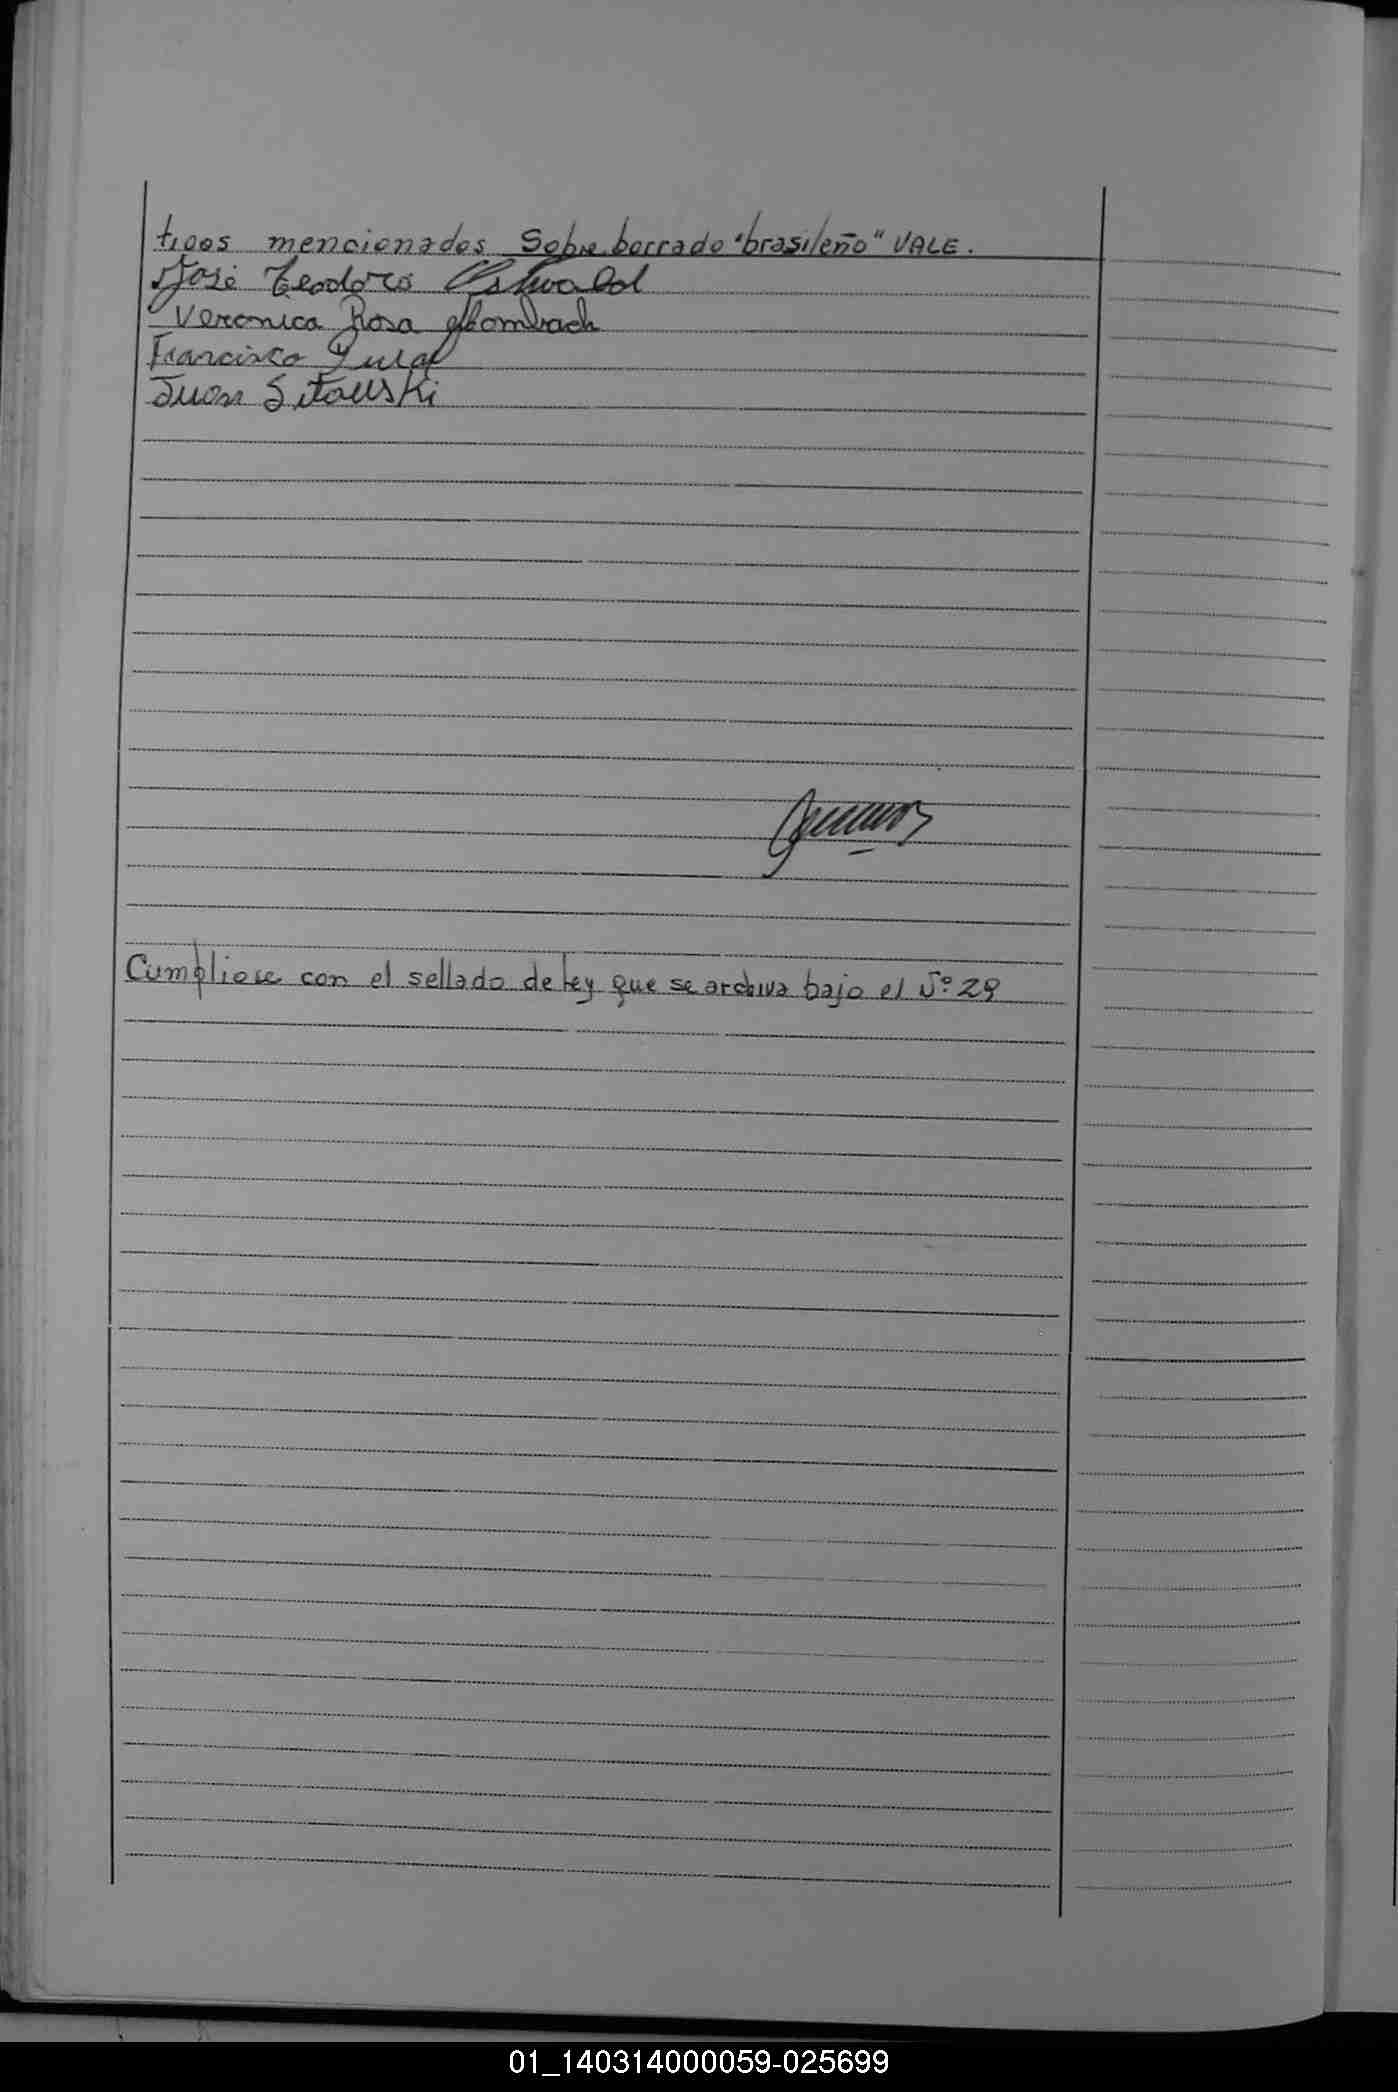 tigos mencionados Sobre borrado "brasileño" VALE.
José Teodoro Ostwald
Veronica Rosa
Francisco
Juan Sitouski
Cumpliose con el sellado de ley que se archiva bajo el Nº 29
01_140314000059-025699